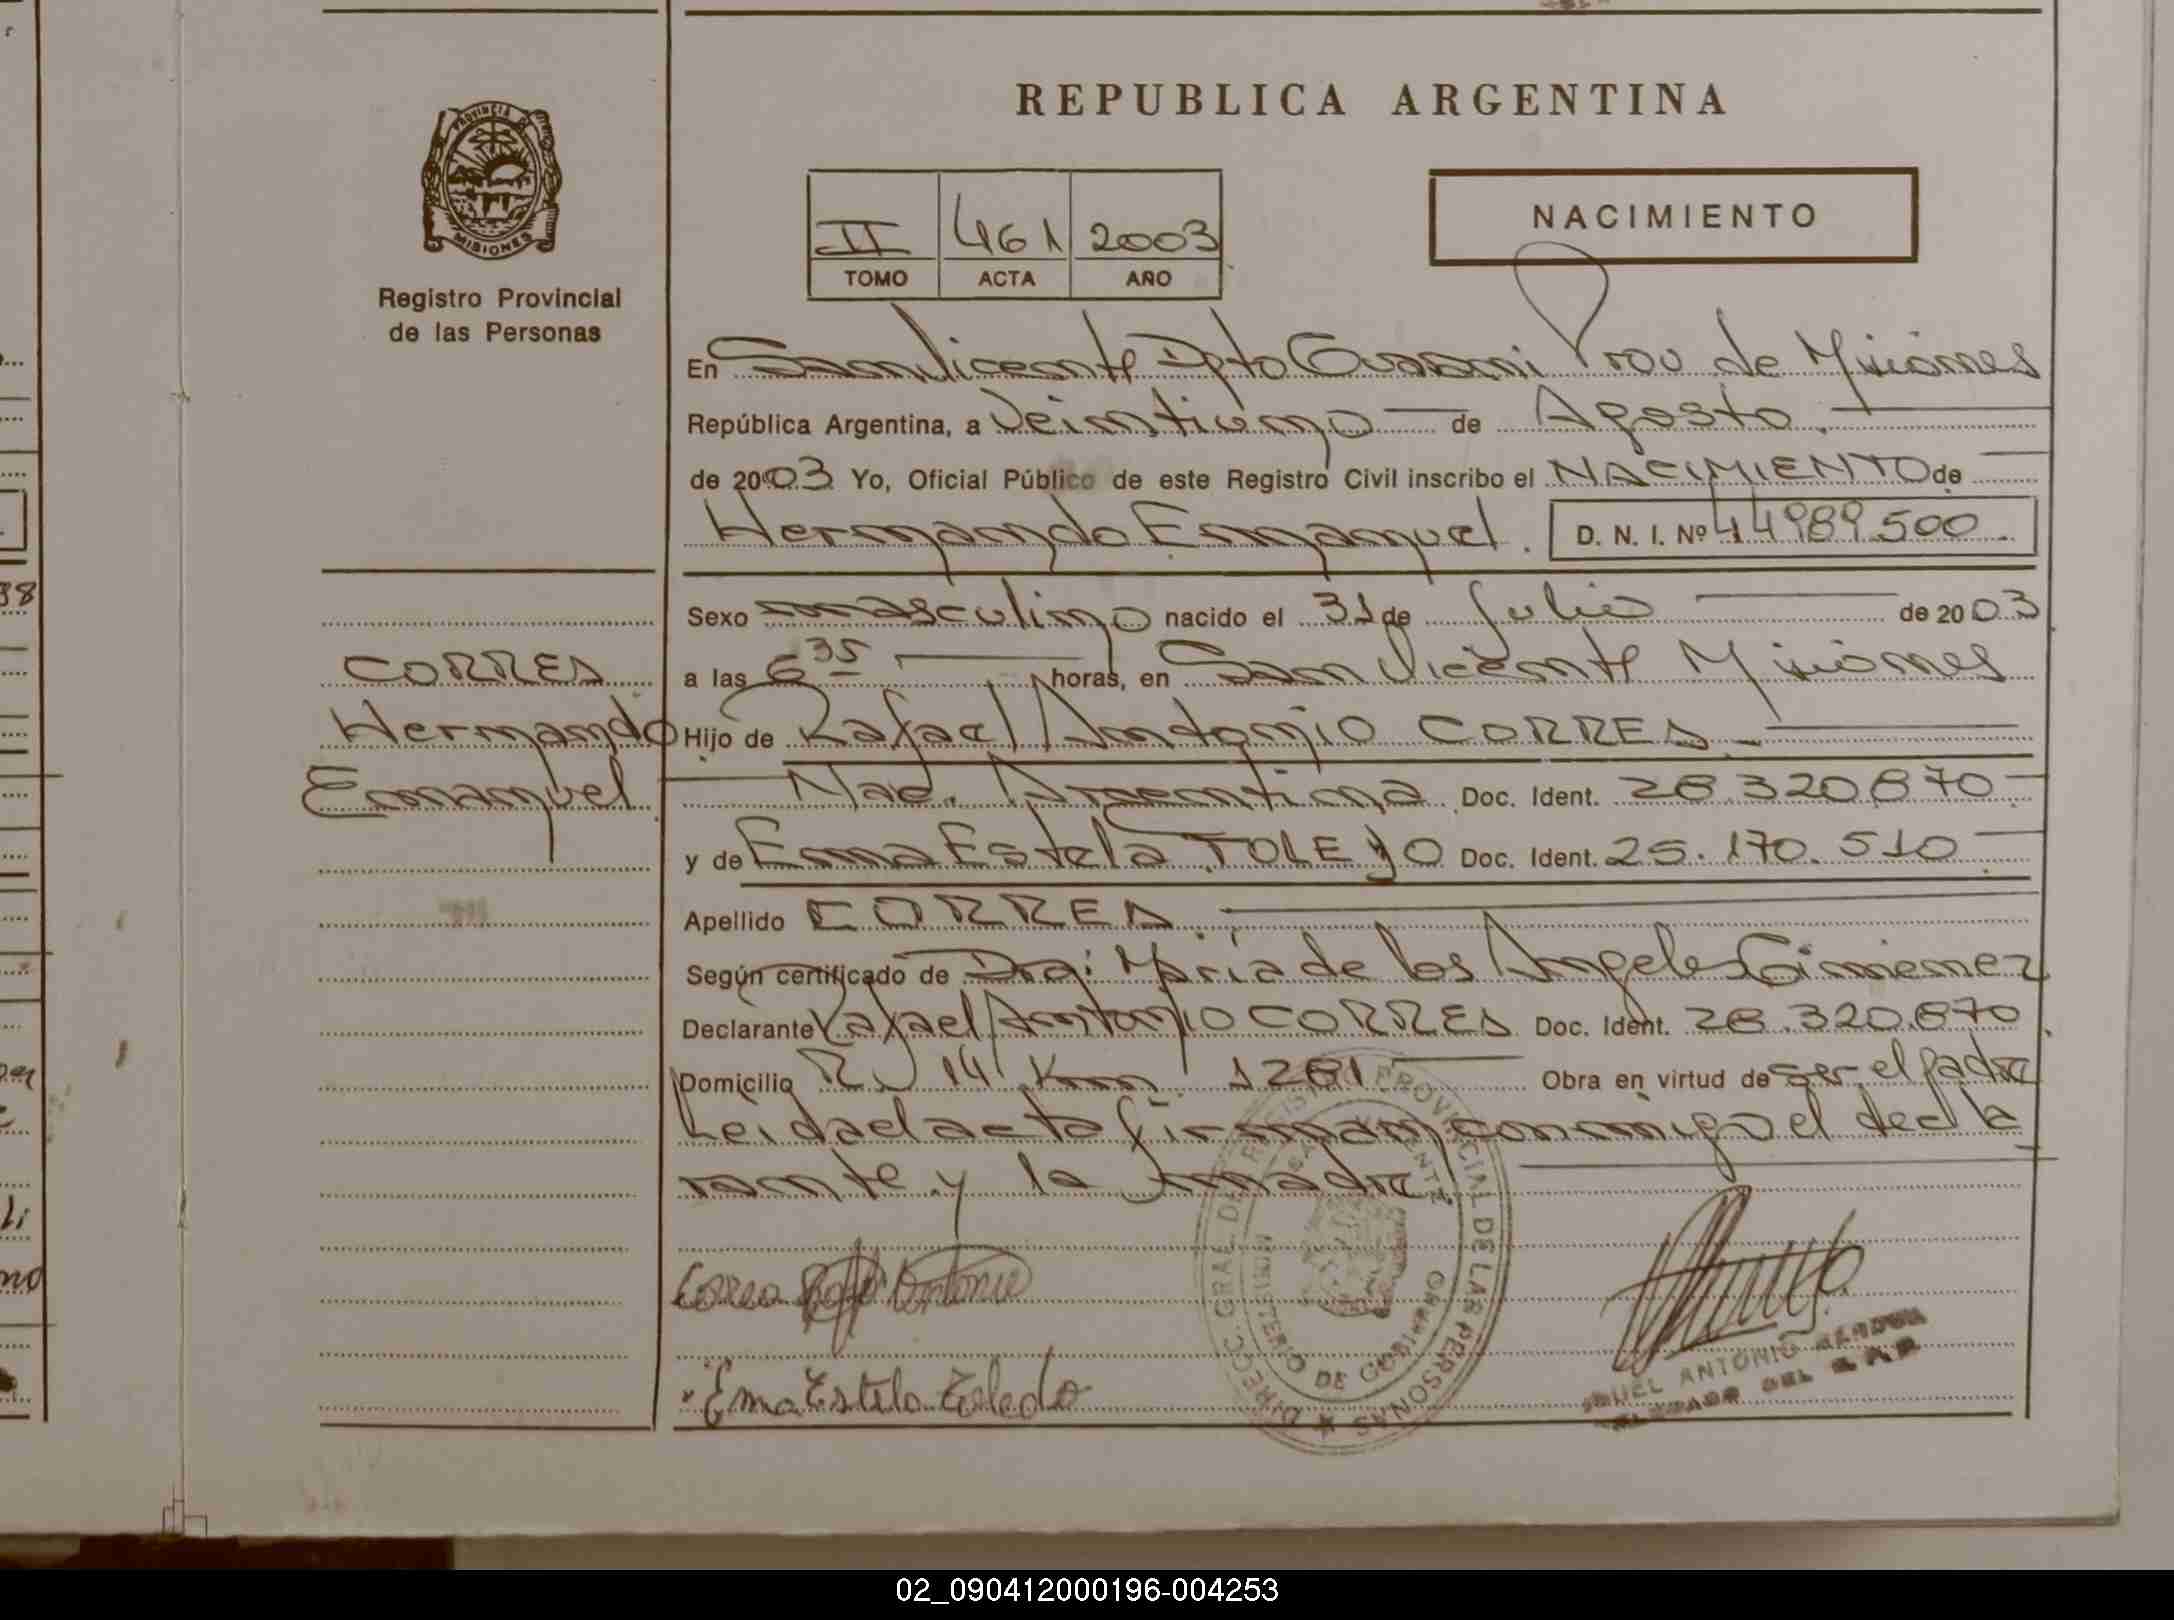 REPUBLICA ARGENTINA
PROVINCIA DE
MISIONES
Registro Provincial
de las Personas
II 461 2003
TOMO ACTA AÑO
NACIMIENTO
En San Vicente Dpto Guarani Prov de Misiones
República Argentina, a Veintiuno de Agosto.
de 2003 Yo, Oficial Público de este Registro Civil inscribo el NACIMIENTO de
Hernando Emanuel. D. N. I. Nº 44989500.
Sexo masculino nacido el 31 de Julio de 2003
a las 6 35 horas, en San Vicente Misiones
Hijo de Rafael Antonio CORREA
Nac. Argentina Doc. Ident. 28.320.870
y de Ema Estela TOLEDO Doc. Ident. 25.170.510
Apellido CORREA
Según certificado de Dra: Maria de los Angeles Gimenez
Declarante Rafael Antonio CORREA Doc. Ident. 28.320.870
Domicilio R N 14 Km 1281 Obra en virtud de ser el padre
Leida el acta firman conmigo el decla
rante y la madre.
CORREA
Hernando
Emanuel
Correa Rafael Antonio
Ema Estela Toledo
DIRECC. GRAL. DEL REGISTRO PROVINCIAL DE LAS PERSONAS
MINISTERIO DE GOBIERNO
SAN VICENTE
ANTONIO
DEL
02_090412000196-004253